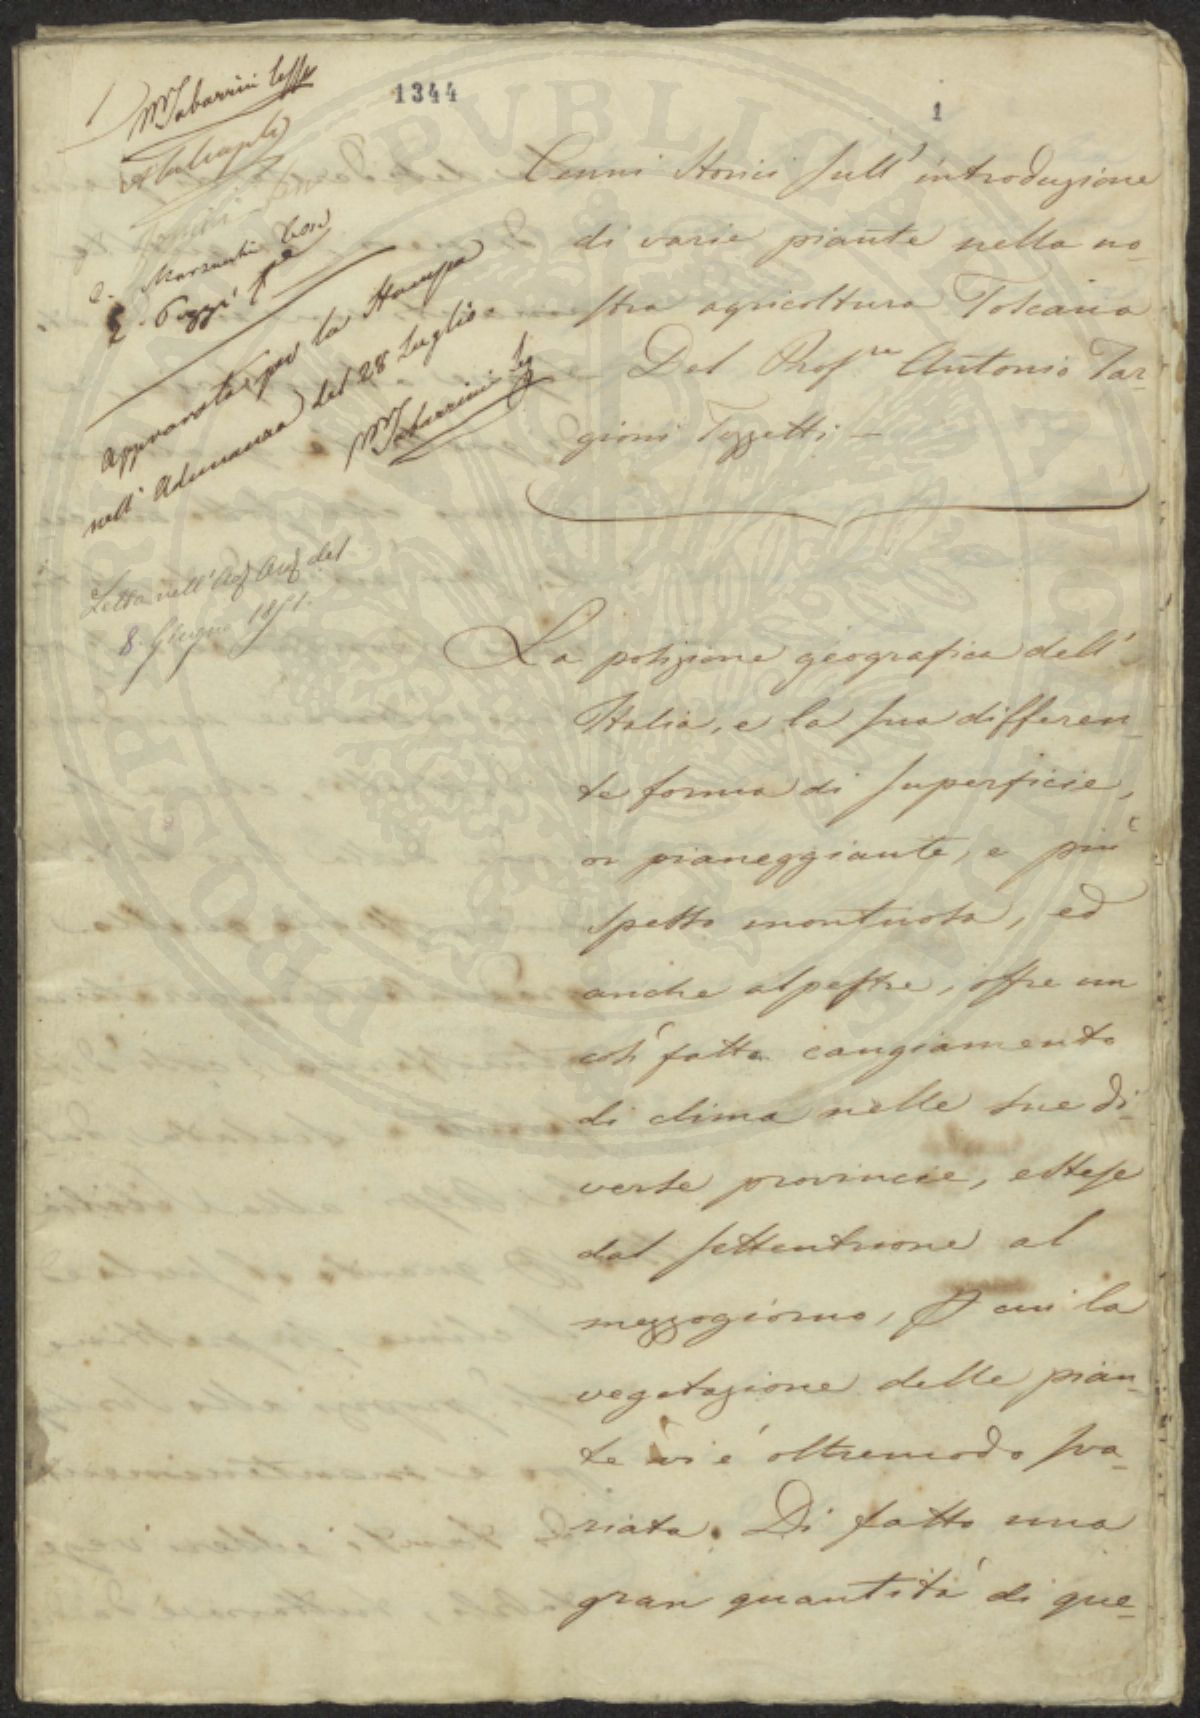 1344
1
M Tabarrini
Approvata per la Stampa
nell' Adunanza del 28 Luglio
M Tabarrini Seg
Letta nell' Ad del
8. Giugno 1851.
Cenni storici sull' introduzione
di varie piante nella no-
stra agricoltura Toscana
Del Prof.re Antonio Tar-
gioni Tozzetti —
La posizione geografica dell'
Italia, e la sua differen-
te forma di superficie,
or pianeggiante, e più
spesso montuosa, ed
anche alpestre, offre un
così fatto cangiamento
di clima nelle sue di-
verse provincie, estese
dal settentrione al
mezzogiorno, cui la
vegetazione delle pian-
te vi è oltremodo sva-
riata. Di fatto una
gran quantità di que-
PUBLICAE
PROSPERITATI
AUGENDAE